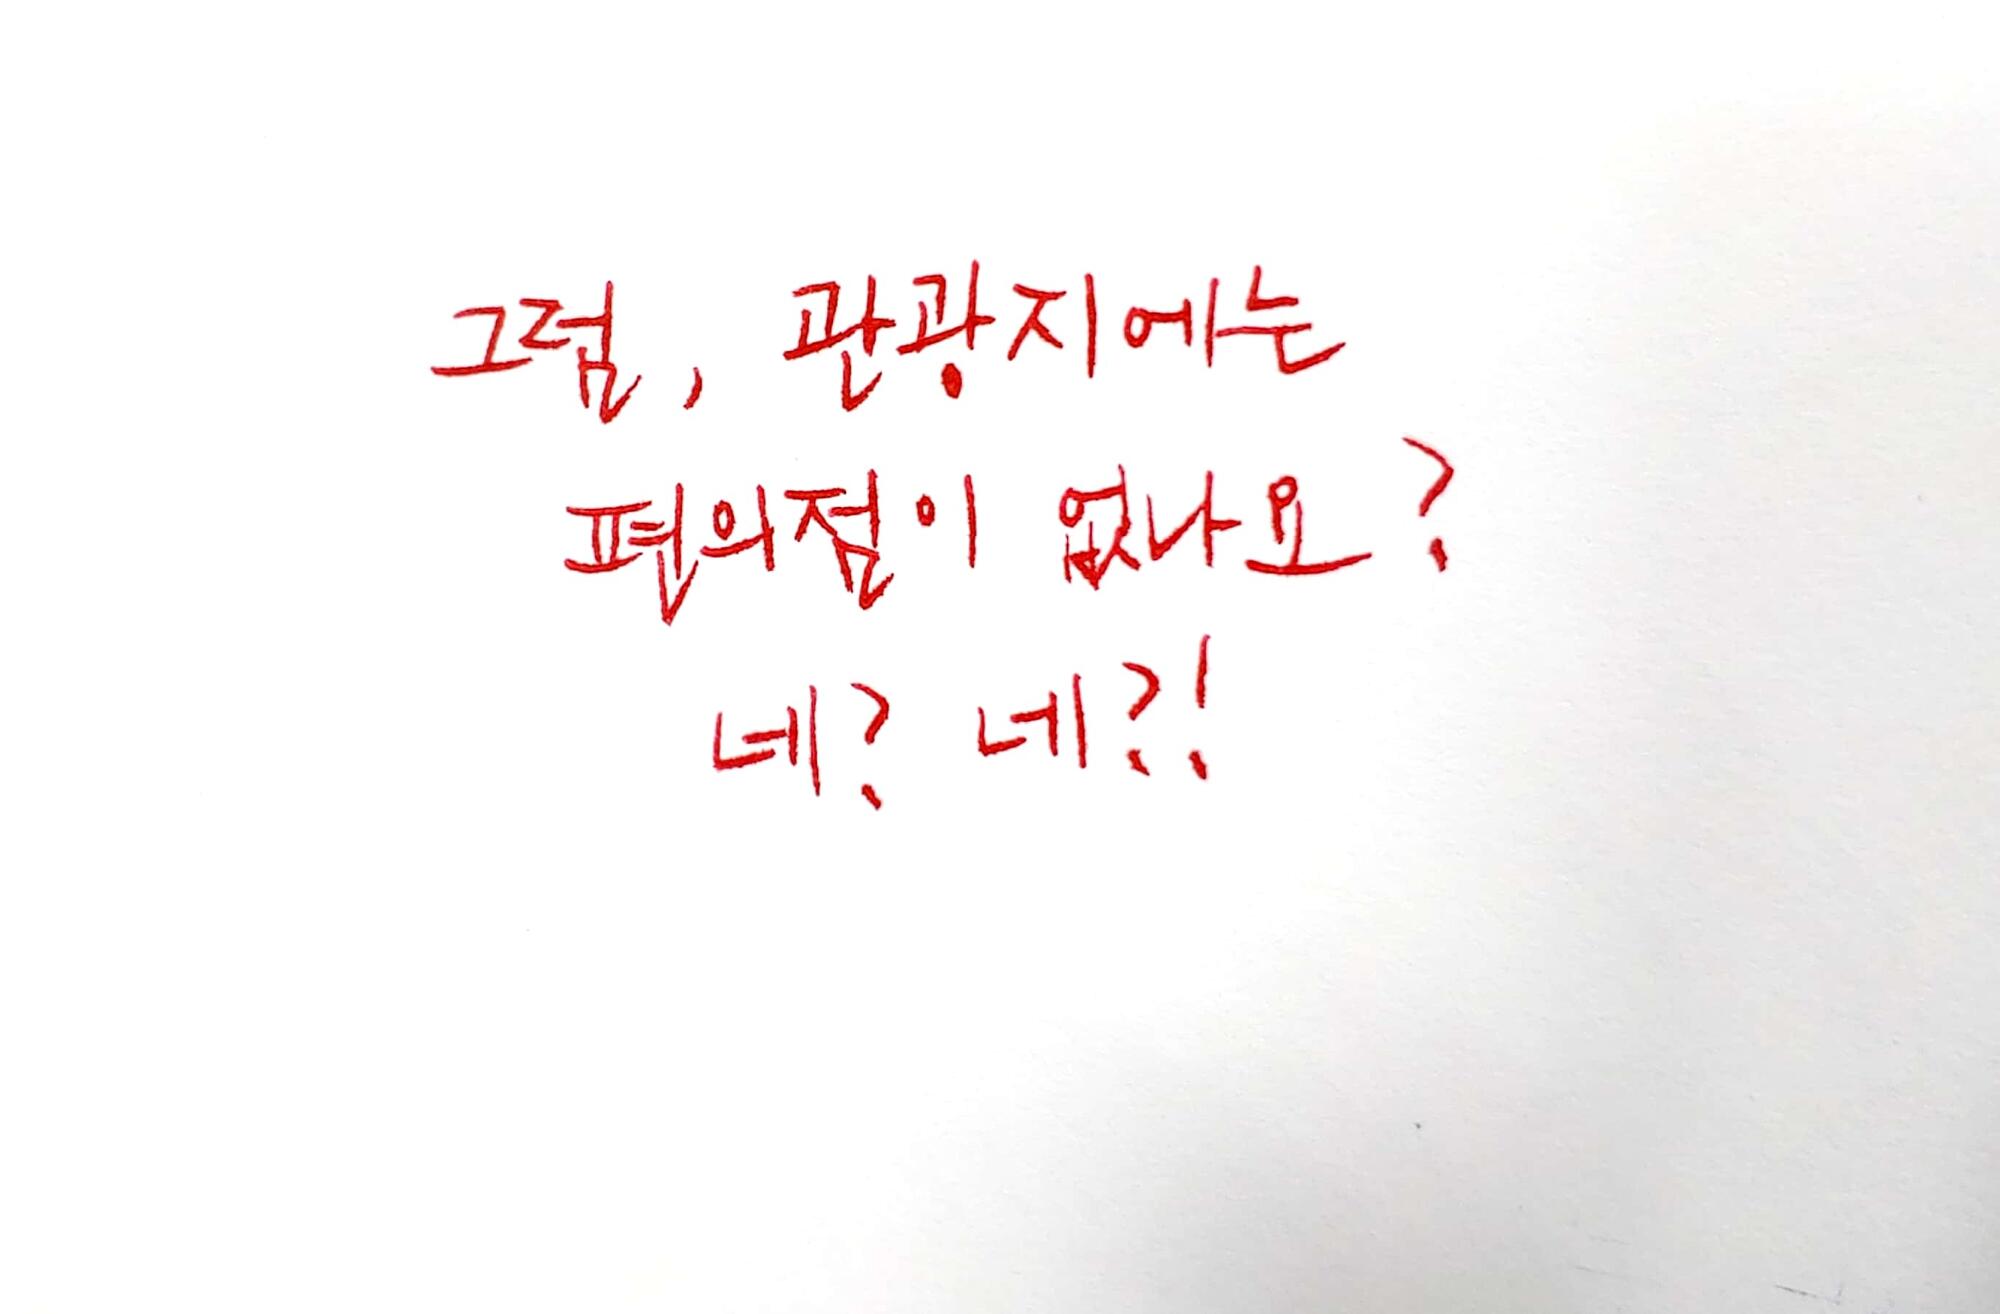 그럼, 관광지에는
편의점이 없나요?
네? 네?!